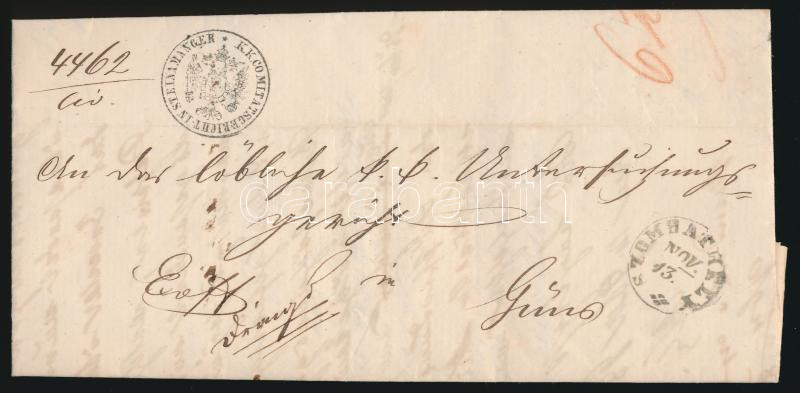 4462
civ.
K.K.COMITATSGERICHT·IN STEINAMANGER
An das löbliche k. k. Untersuchungs-
gericht
in
Güns
SZOMBATHELY
NOV.
13.
darabanth